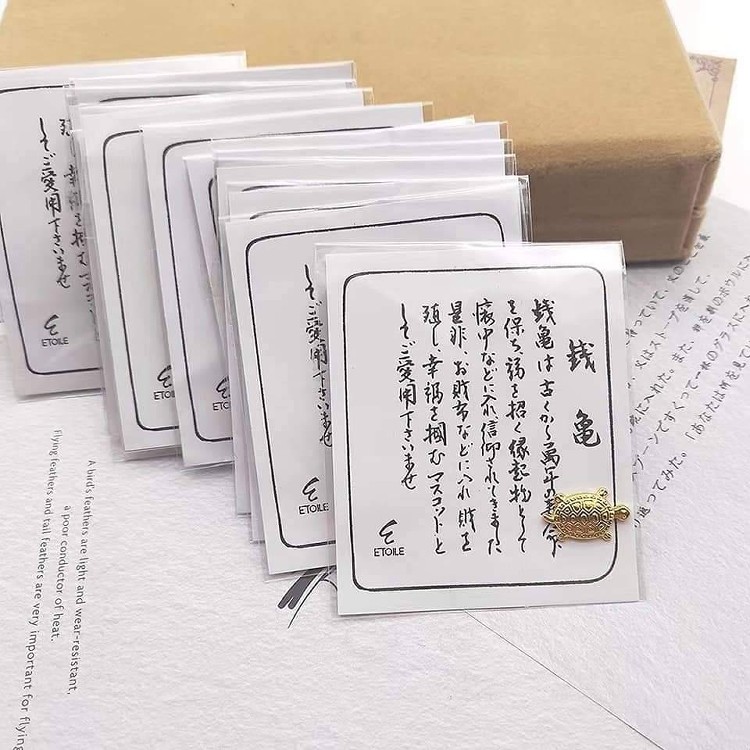 銭亀
銭亀は古くから萬年の
を保ち福を招く縁起物として
懐中などに入れ信仰されてきました
是非、お財布などに入れ 財を
殖し幸福を掴むマスコットと
してご愛用下さいませ
ETOILE
してご愛用下さいませ
ETOILE
ETOILE
ETOILE
してご愛用下さいませ
ETOILE
A bird's feathers are light and wear-resistant,
a poor conductor of heat.
Flying feathers and tail feathers are very important for flying
又はストーブを消して、
に入れた。また、
ーンですくって一杯のグラスに入
ってみた。「あなたは何を見て